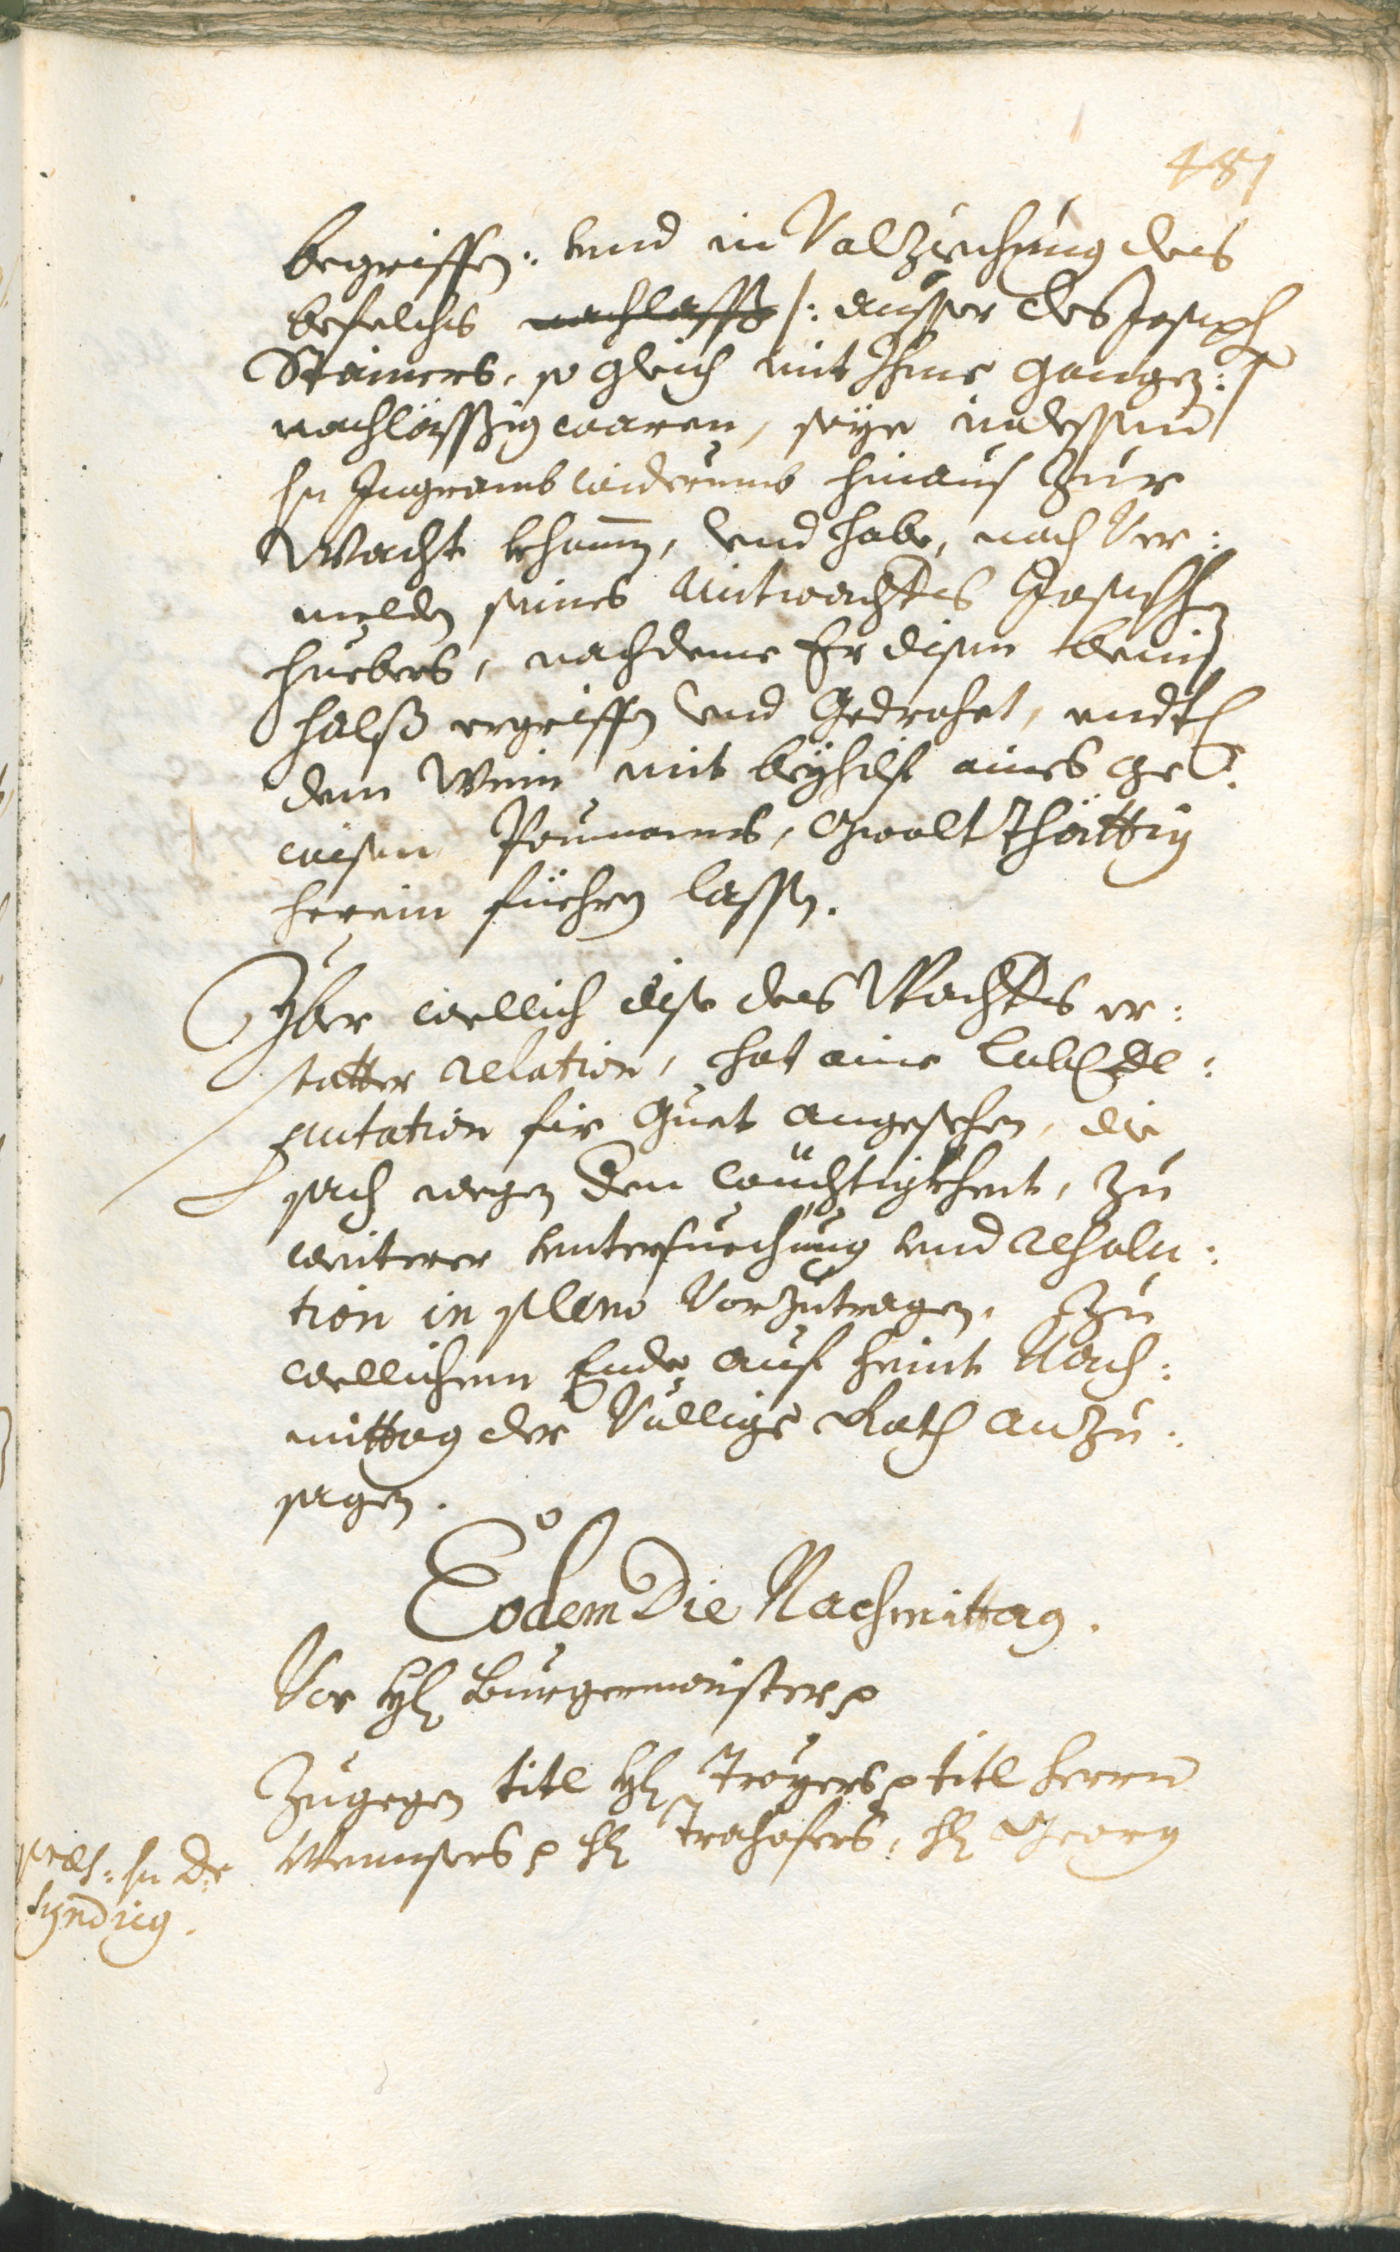 481
begriffen: und in Volziechung des
befelchs nachlässig /: ausser des Joseph
Stainers, so gleich mit Ihme gangen :/
nachlässig waren, seye indessen
Hr Ingramb widerumb hinaus zur
Wacht khomen, und habe, nach Ver:
melden seines Mitwachters Josephen
Huebers, nachdeme Er disen beim
Halß ergriffen und Gedrohet, endtl
den Wein mit beyhilf eines ge:
wisen Paumans, Gwaltthättig
herein füehren lassen.
Yber wellich dise des Wachters er:
statter relation, hat eine Lobl De:
putation für Guet angesehen, die
sach wegen den Wüchtigkheit, zu
weiterer untersuechung und resolu:
tion in pleno Vorzutragen, Zu
wellichem Ende auf heint Nach:
mittag der Völlige Rath anzu:
sagen.
Eodem Die Nachmittag.
Vor Hl Burgermeister p
Zugegen titl Hl Troyers p titl Herrn
Wennsers p Hl Trohofers, Hl Georg
præs: Hr Dr
Syndicg.